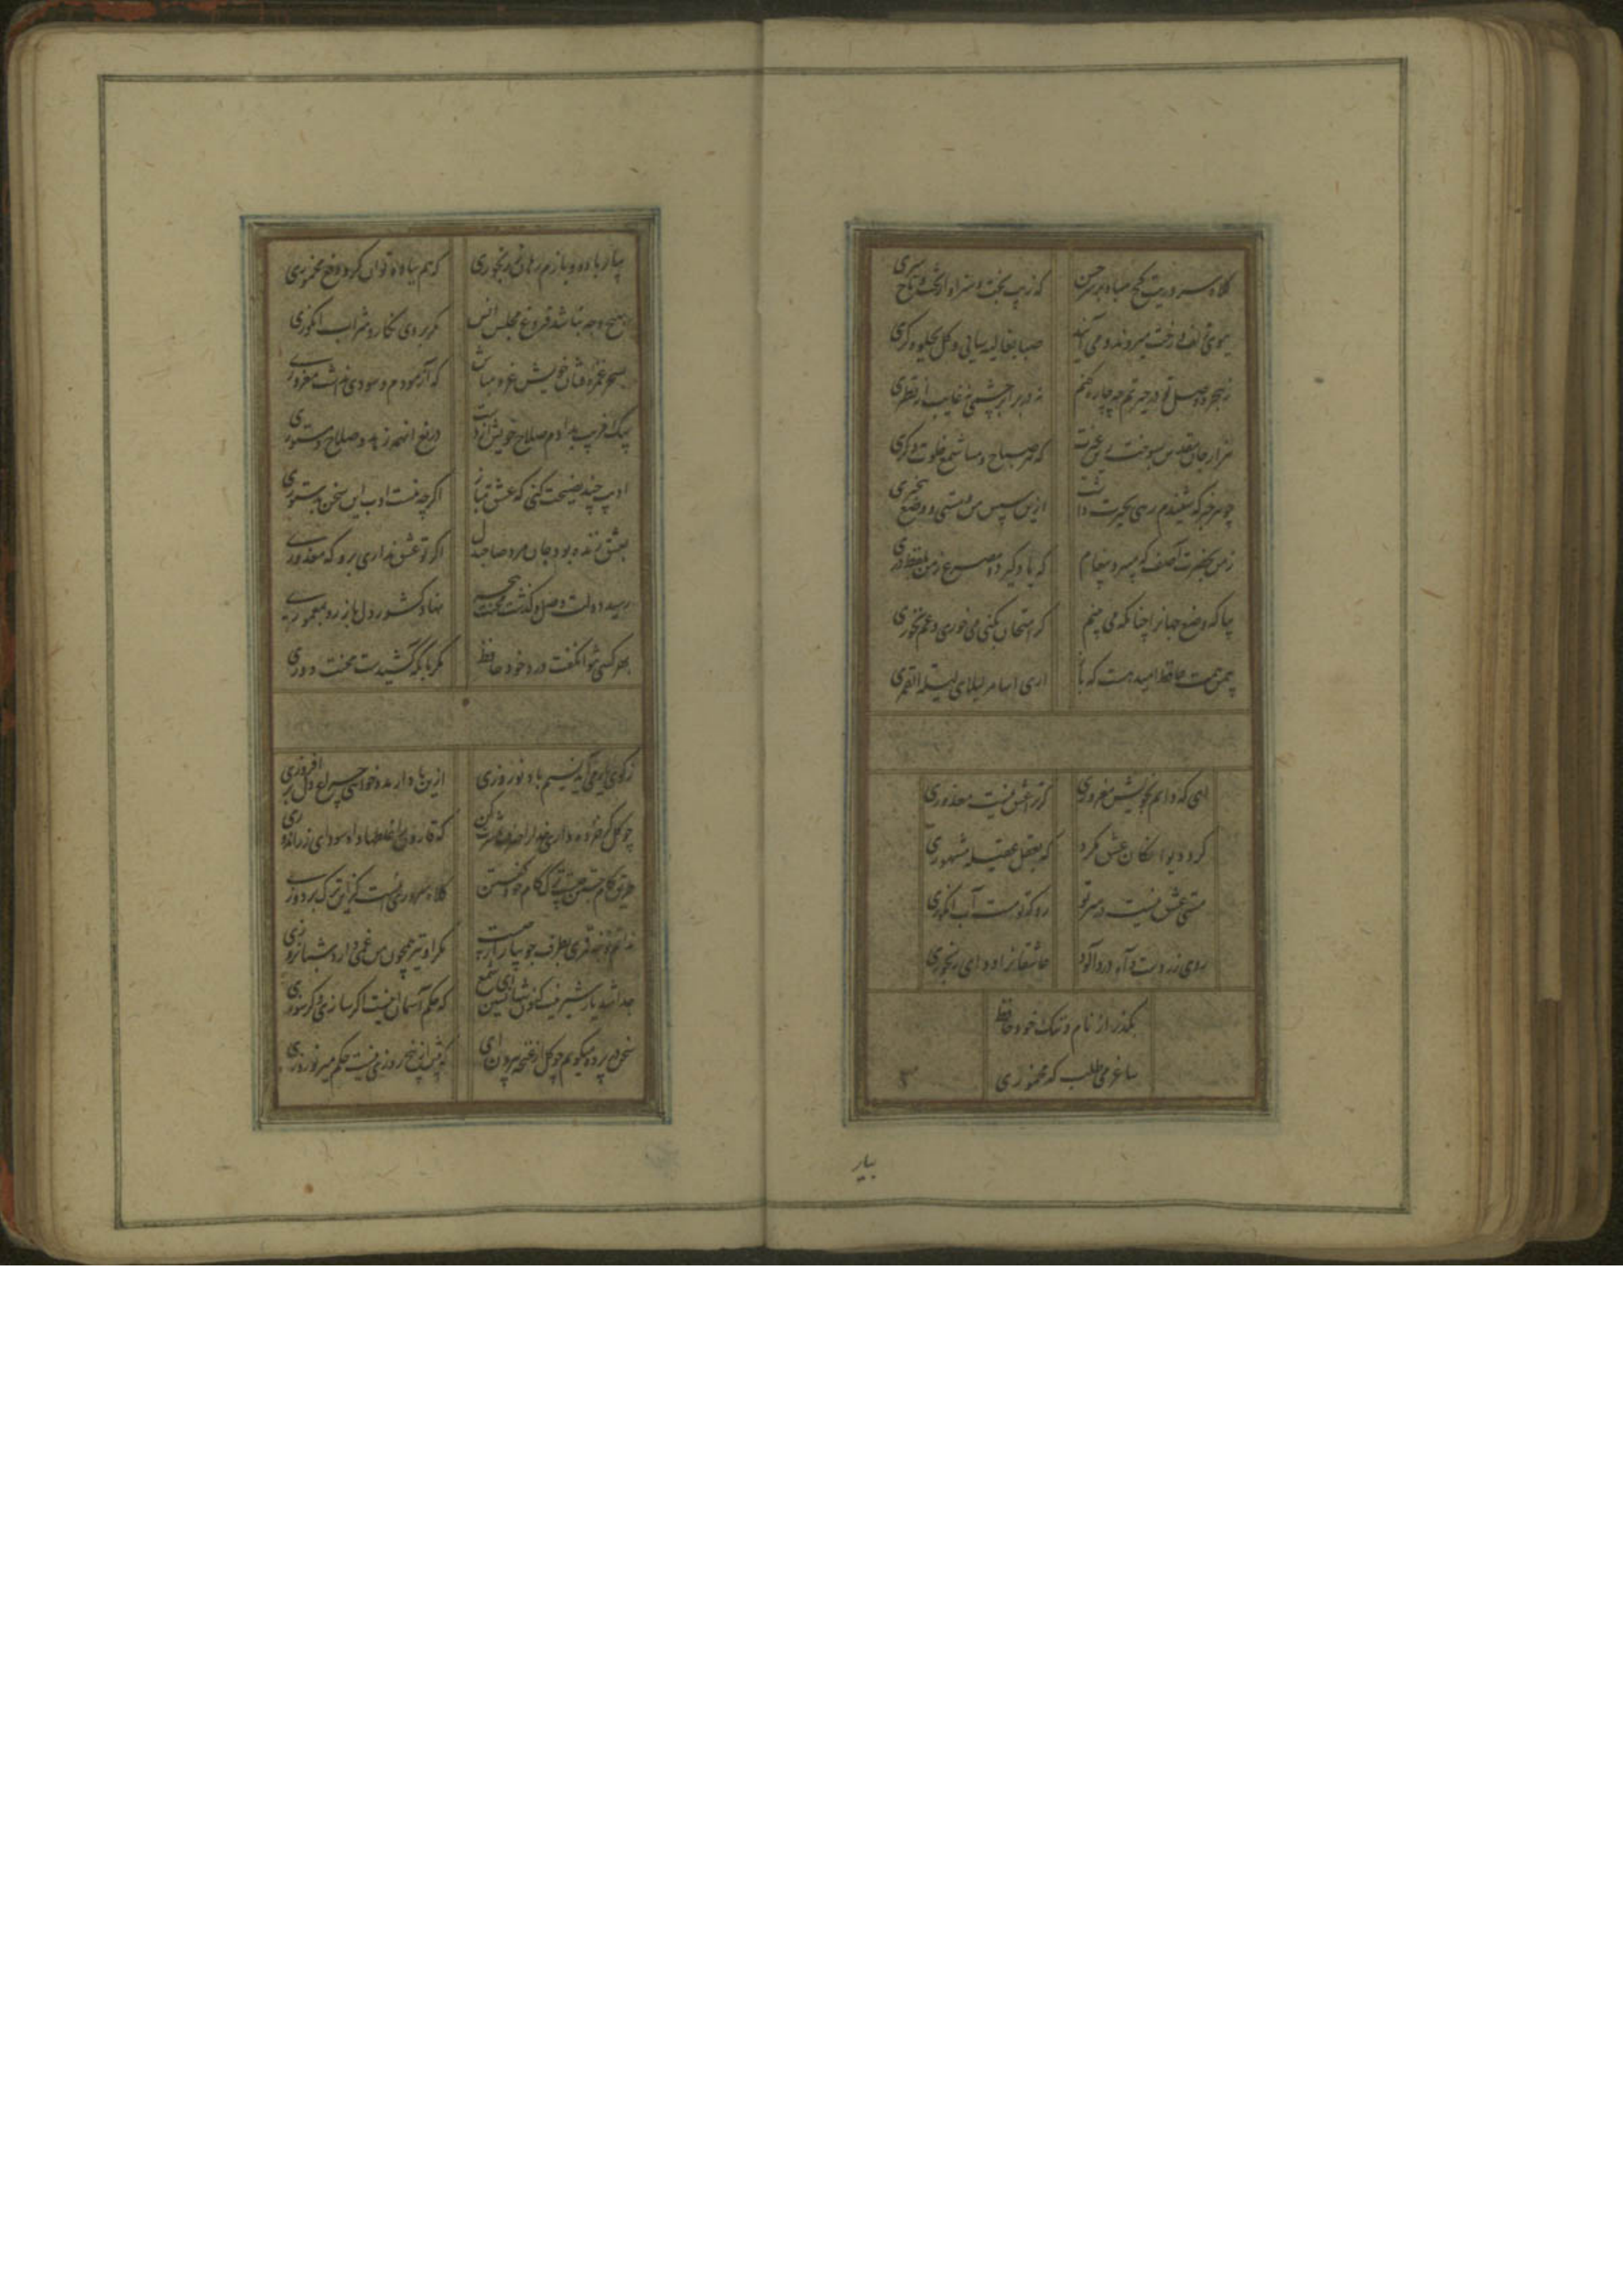 کلاه سروریت کج مباد بر سر حسن که زیب بخت و سزاوار تخت و تاج سری
ببوی زلف و رخت میروند و می آیند صبا بغالیه سائی و کل بجلوه کری
ز هجر و وصل تو در حیرتم چه چاره کنم نه در برابر چشمی نه غایب از نظری
هزار جان مقدس بسوخت زین غیرت که هر صباح و مسا شمع خلوت دکری
چو هر خبر که شنیدم رهی بحیرت داشت ازین سپس من و مستی و وضع بیخبری
ز من بحضرت آصف که میبرد پیغام که یاد کیر دو مصرع ز من بلفظ دری
بیا که وضع جهانرا چنانکه می بینم کر امتحان بکنی می خوری و غم نخوری
بیمن همت حافظ امید هست که باز اری اسامر لیلای لیلة القمری
ای که دایم بخویش مغروری کر ترا عشق نیست معذوری
کرد دیوانکان عشق مکرد که بعقل عقیله مشهوری
مستی عشق نیست در سر تو رو که تو مست آب انکوری
روی زردست و آه دردآلود عاشقانرا دوای رنجوری
بکذر از نام و ننک خود حافظ
ساغر می طلب که مخموری
بیار
بیار باده و بازم رهان ز رنجوری که هم بباده توان کرد دفع مخموری
بهیچ وجه نباشد فروغ مجلس انس مکر بروی نکار و شراب انکوری
بسحر غمزه فتان خویش غره مباش که آزمودم و سودی نداشت مغروری
بیک فریب بدادم صلاح خویش از دست دریغ آنهمه زهد و صلاح و مستوری
ادیب چند نصیحت کنی که عشق مباز اکرچه نیست ادب این سخن بدستوری
بعشق زنده بود جان مرد صاحبدل اکر تو عشق نداری برو که معذوری
رسید دولت وصل و کذشت محنت هجر نهاد کشور دل باز رو بمعموری
بهر کسی نتوان کفت درد خود حافظ مکر بآنکه کشیدست محنت دوری
ز کوی یار می آید نسیم باد نوروزی ازین باد ار مدد خواهی چراغ دل برافروزی
چو کل کر خرده داری خدا را صرف عشرت کن که قارون را غلطها داد سودای زراندوزی
طریق کام جستن چیست ترک کام خود کفتن کلاه سروری آنست کز این ترک بردوزی
ندانم نوحه قمری بطرف جویباران چیست مکر او نیز همچون من غمی دارد شبانروزی
جدا شد یار شیرینت کنون تنها نشین ای شمع که حکم آسمان اینست اکر سازی و کر سوزی
سخن در پرده میکویم چو کل از غنچه بیرون آی که بیش از پنج روزی نیست حکم میر نوروزی